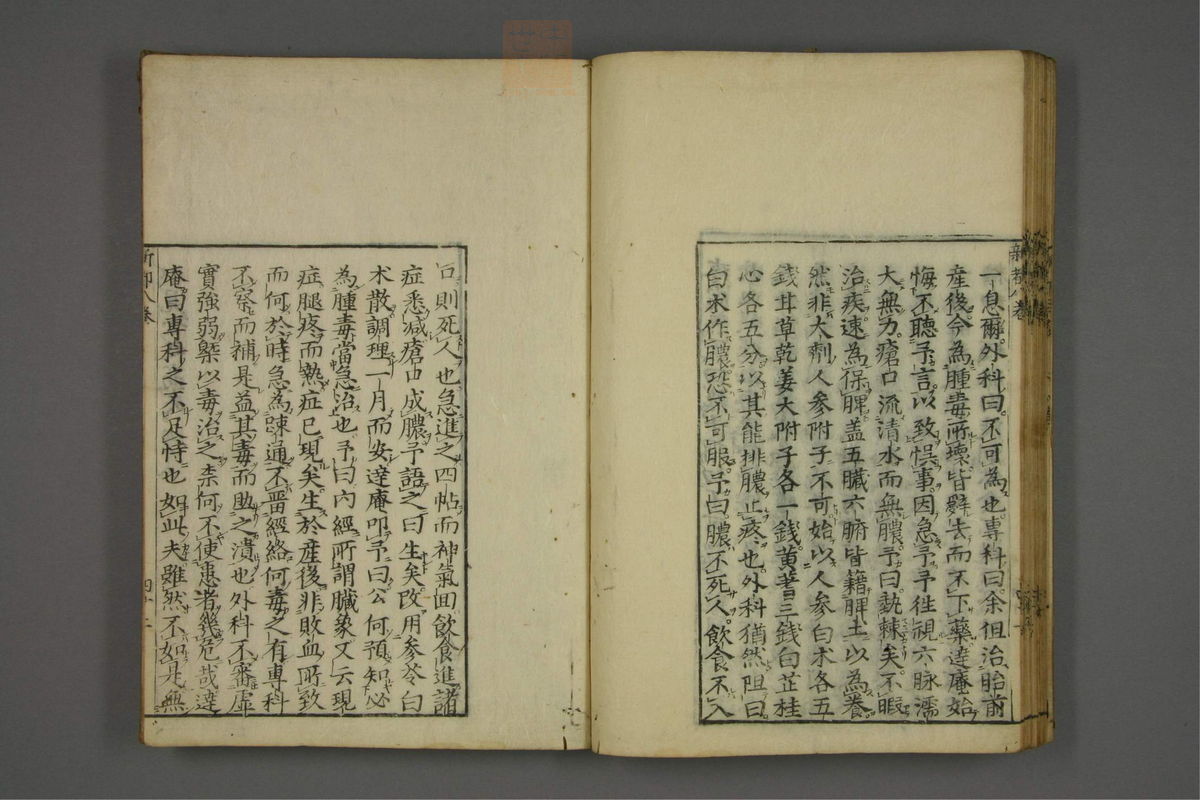 一息爾外科曰不可為也專科曰余但治胎前
産後今為腫毒所壞皆辭去而不下藥達庵始
悔不聽予言以致悞事因急予予徃視六脉濡
大無力瘡口流清水而無膿予曰執棘矣不暇
治疾速為保脾盖五臟六腑皆藉脾土以為養
然非大劑人參附子不可始以人參白术各五
錢甘草乾姜大附子各一錢黄蓍三錢白芷桂
心各五分以其能排膿止疼也外科猶然阻曰
白术作膿恐不可服予曰膿不死人飲食不入
口則死人也急進之四帖而神氣回飲食進諸
症悉减瘡口成膿予語之曰生矣改用參苓白
术散調理一月而安達庵叩予曰公何預知必
為腫毒當急治也予曰内經所謂臟象又云現
症腿疼而熱症已現矣生於産後非敗血所致
而何於時急為踈通不畱經絡何毒之有專科
不察而補是益其毒而助之潰也外科不審虛
實強弱槩以毒治之柰何不使患者幾危哉達
庵曰專科之不足恃也如此夫雖然不如是無
新都八卷